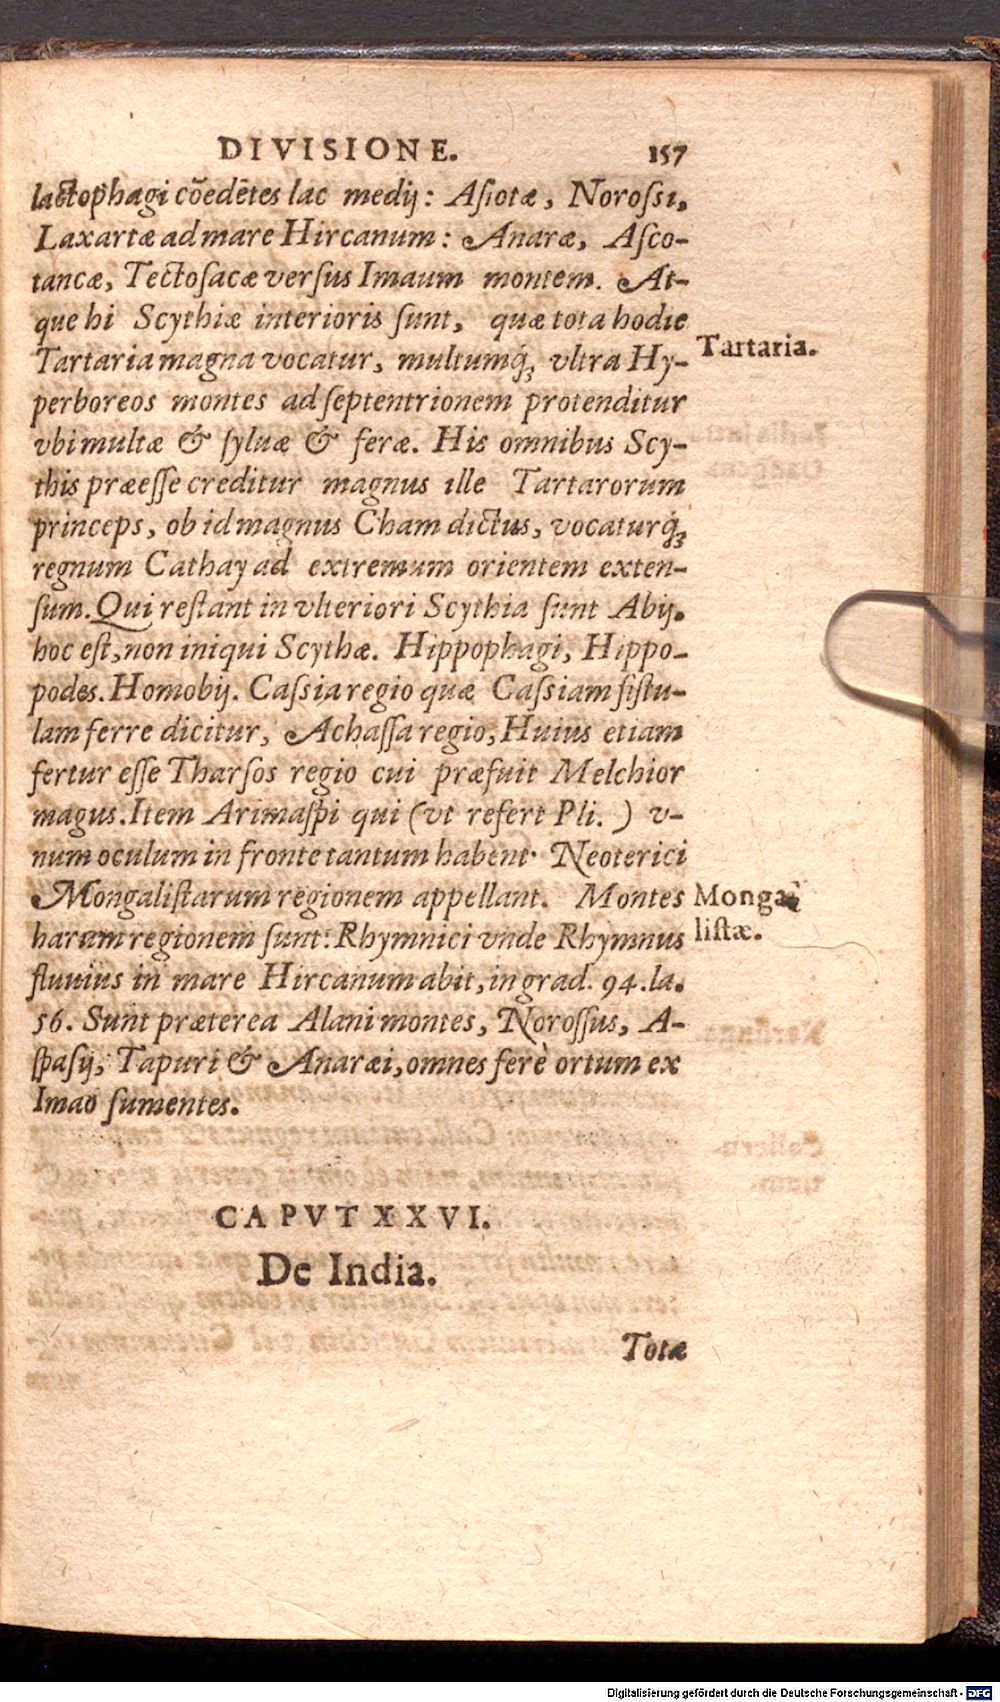 DIVISIONE. 157
lactophagi cōedētes lac medij: Asiotæ, Norossi,
Laxartæ ad mare Hircanum: Anaræ, Asco-
tancæ, Tectosacæ versus Imaum montem. At-
que hi Scythiæ interioris sunt, quæ tota hodie
Tartaria.
Tartaria magna vocatur, multumq́ꝫ vltra Hy-
perboreos montes ad septentrionem protenditur
vbi multæ & syluæ & feræ. His omnibus Scy-
this præesse creditur magnus ille Tartarorum
princeps, ob id magnus Cham dictus, vocaturq́ꝫ
regnum Cathay ad extremum orientem exten-
sum. Qui restant in vlteriori Scythia sunt Abij.
hoc est, non iniqui Scythæ. Hippophagi, Hippo-
podes. Homobij. Cassia regio quæ Cassiam fistu-
lam ferre dicitur, Achassa regio, Huius etiam
fertur esse Tharsos regio cui præfuit Melchior
magus. Item Arimaspi qui (vt refert Pli. ) v-
num oculum in fronte tantum habent. Neoterici
Mongalistarum regionem appellant. Montes
Monga-
listæ.
harum regionem sunt: Rhymnici vnde Rhymnus
fluuius in mare Hircanum abit, in grad. 94. la.
56. Sunt præterea Alani montes, Norossus, A-
spasij, Tapuri & Anaræi, omnes ferè ortum ex
Imao sumentes.
CAPVT XXVI.
De India.
Totæ
Digitalisierung gefördert durch die Deutsche Forschungsgemeinschaft - DFG